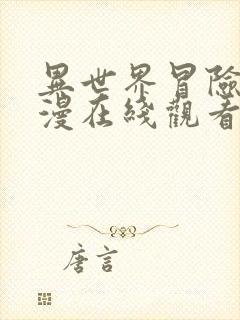 異世界冒險
漫在綫觀看
唐言